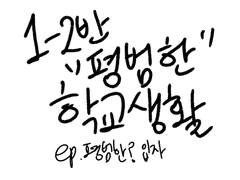 1-2반
"평범한"
학교생활
ep.평범한? 입자